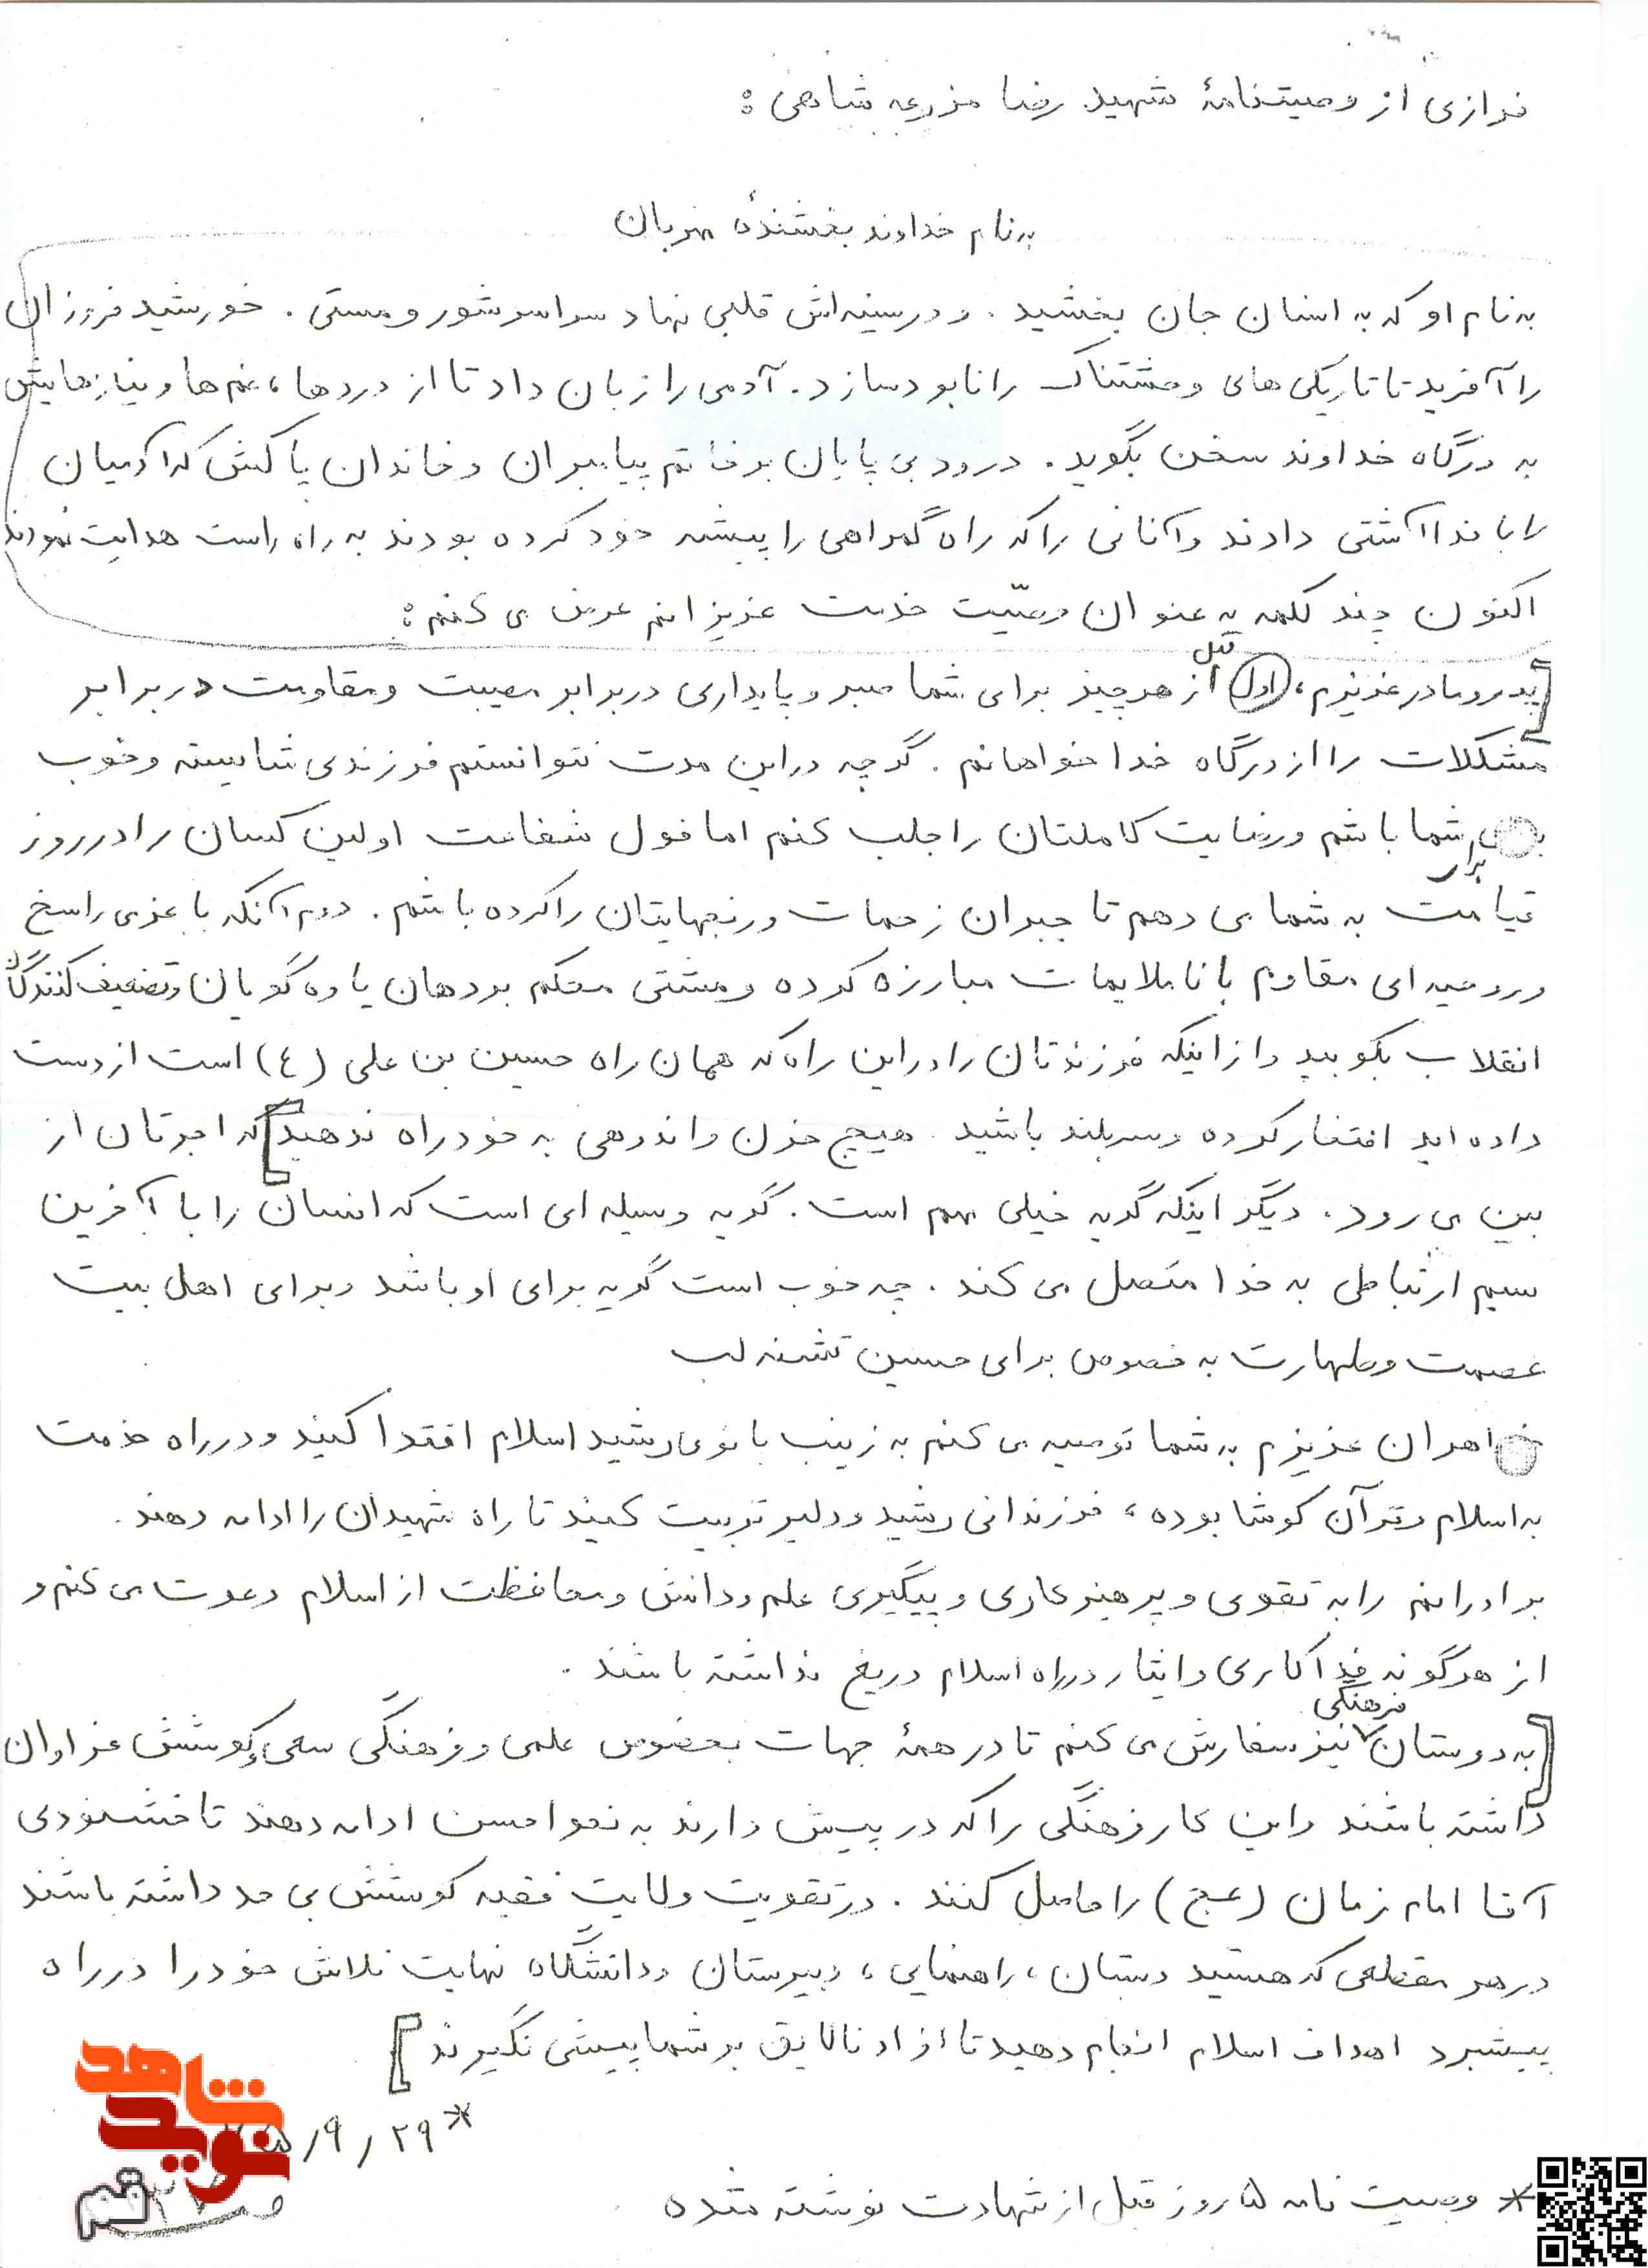 فرازی از وصیتنامهٔ شهید رضا مزرعه شاهی :
به نام خداوند بخشندهٔ مهربان
به نام او که به انسان جان بخشید . و در سینه‌اش قلبی نهاد سراسر شور و مستی . خورشید فروزان
را آفرید تا تاریکی های وحشتناک را نابود سازد . آدمی را زبان داد تا از دردها ، غم ها و نیازهایش
به درگاه خداوند سخن بگوید . درود بی پایان بر خاتم پیامبران و خاندان پاکش که آدمیان
را با خدا آشتی دادند و آنانی را که راه گمراهی را پیشه خود کرده بودند به راه راست هدایت نمودند
اکنون چند کلمه به عنوان وصیّت خدمت عزیزانم عرض می کنم :
پدر و مادر عزیزم ، اول قبل از هر چیز برای شما صبر و پایداری در برابر مصیبت و مقاومت در برابر
مشکلات را از درگاه خدا خواهانم . گرچه در این مدت نتوانستم فرزندی شایسته و خوب
برای شما باشم و رضایت کاملتان را جلب کنم اما قول شفاعت اولین کسان را در روز
قیامت به شما می دهم تا جبران زحمات و رنجهایتان را کرده باشم . دوم آنکه با عزمی راسخ
و روحیه ای مقاوم با ناملایمات مبارزه کرده و مشتی محکم بر دهان یاوه گویان و تضعیف کنندگان
انقلاب بکوبید و از اینکه فرزندتان را در این راه که همان راه حسین بن علی (ع) است از دست
داده اید افتخار کرده و سربلند باشید . هیچ حزن و اندوهی به خود راه ندهید [ که اجرتان از
بین می رود . دیگر اینکه گریه خیلی مهم است . گریه وسیله ای است که انسان را با آخرین
سیم ارتباطی به خدا متصل می کند . چه خوب است گریه برای او باشد و برای اهل بیت
عصمت و طهارت به خصوص برای حسین تشنه لب
خواهران عزیزم به شما توصیه می کنم به زینب بانوی رشید اسلام اقتدا کنید و در راه خدمت
به اسلام و قرآن کوشا بوده ، فرزندانی رشید و دلیر تربیت کنید تا راه شهیدان را ادامه دهند .
برادرانم را به تقوی و پرهیزکاری و پیگیری علم و دانش و محافظت از اسلام دعوت می کنم و
از هرگونه فداکاری و ایثار در راه اسلام دریغ نداشته باشند .
[ به دوستان فرهنگی نیز سفارش می کنم تا در همهٔ جهات بخصوص علمی و فرهنگی سعی و کوشش فراوان
داشته باشند و این کار فرهنگی را که در پیش دارند به نحو احسن ادامه دهند تا خشنودی
آقا امام زمان (عج) را حاصل کنند . در تقویت ولایت فقیه کوشش بی حد داشته باشند
در هر مقطعی که هستید دبستان ، راهنمایی ، دبیرستان و دانشگاه نهایت تلاش خود را در راه
پیشبرد اهداف اسلام انجام دهید تا افراد نالایق بر شما پیشی نگیرند ]
* ۲۹ / ۹ /
* وصیت نامه ۵ روز قبل از شهادت نوشته شده
نوید شاهد
قم